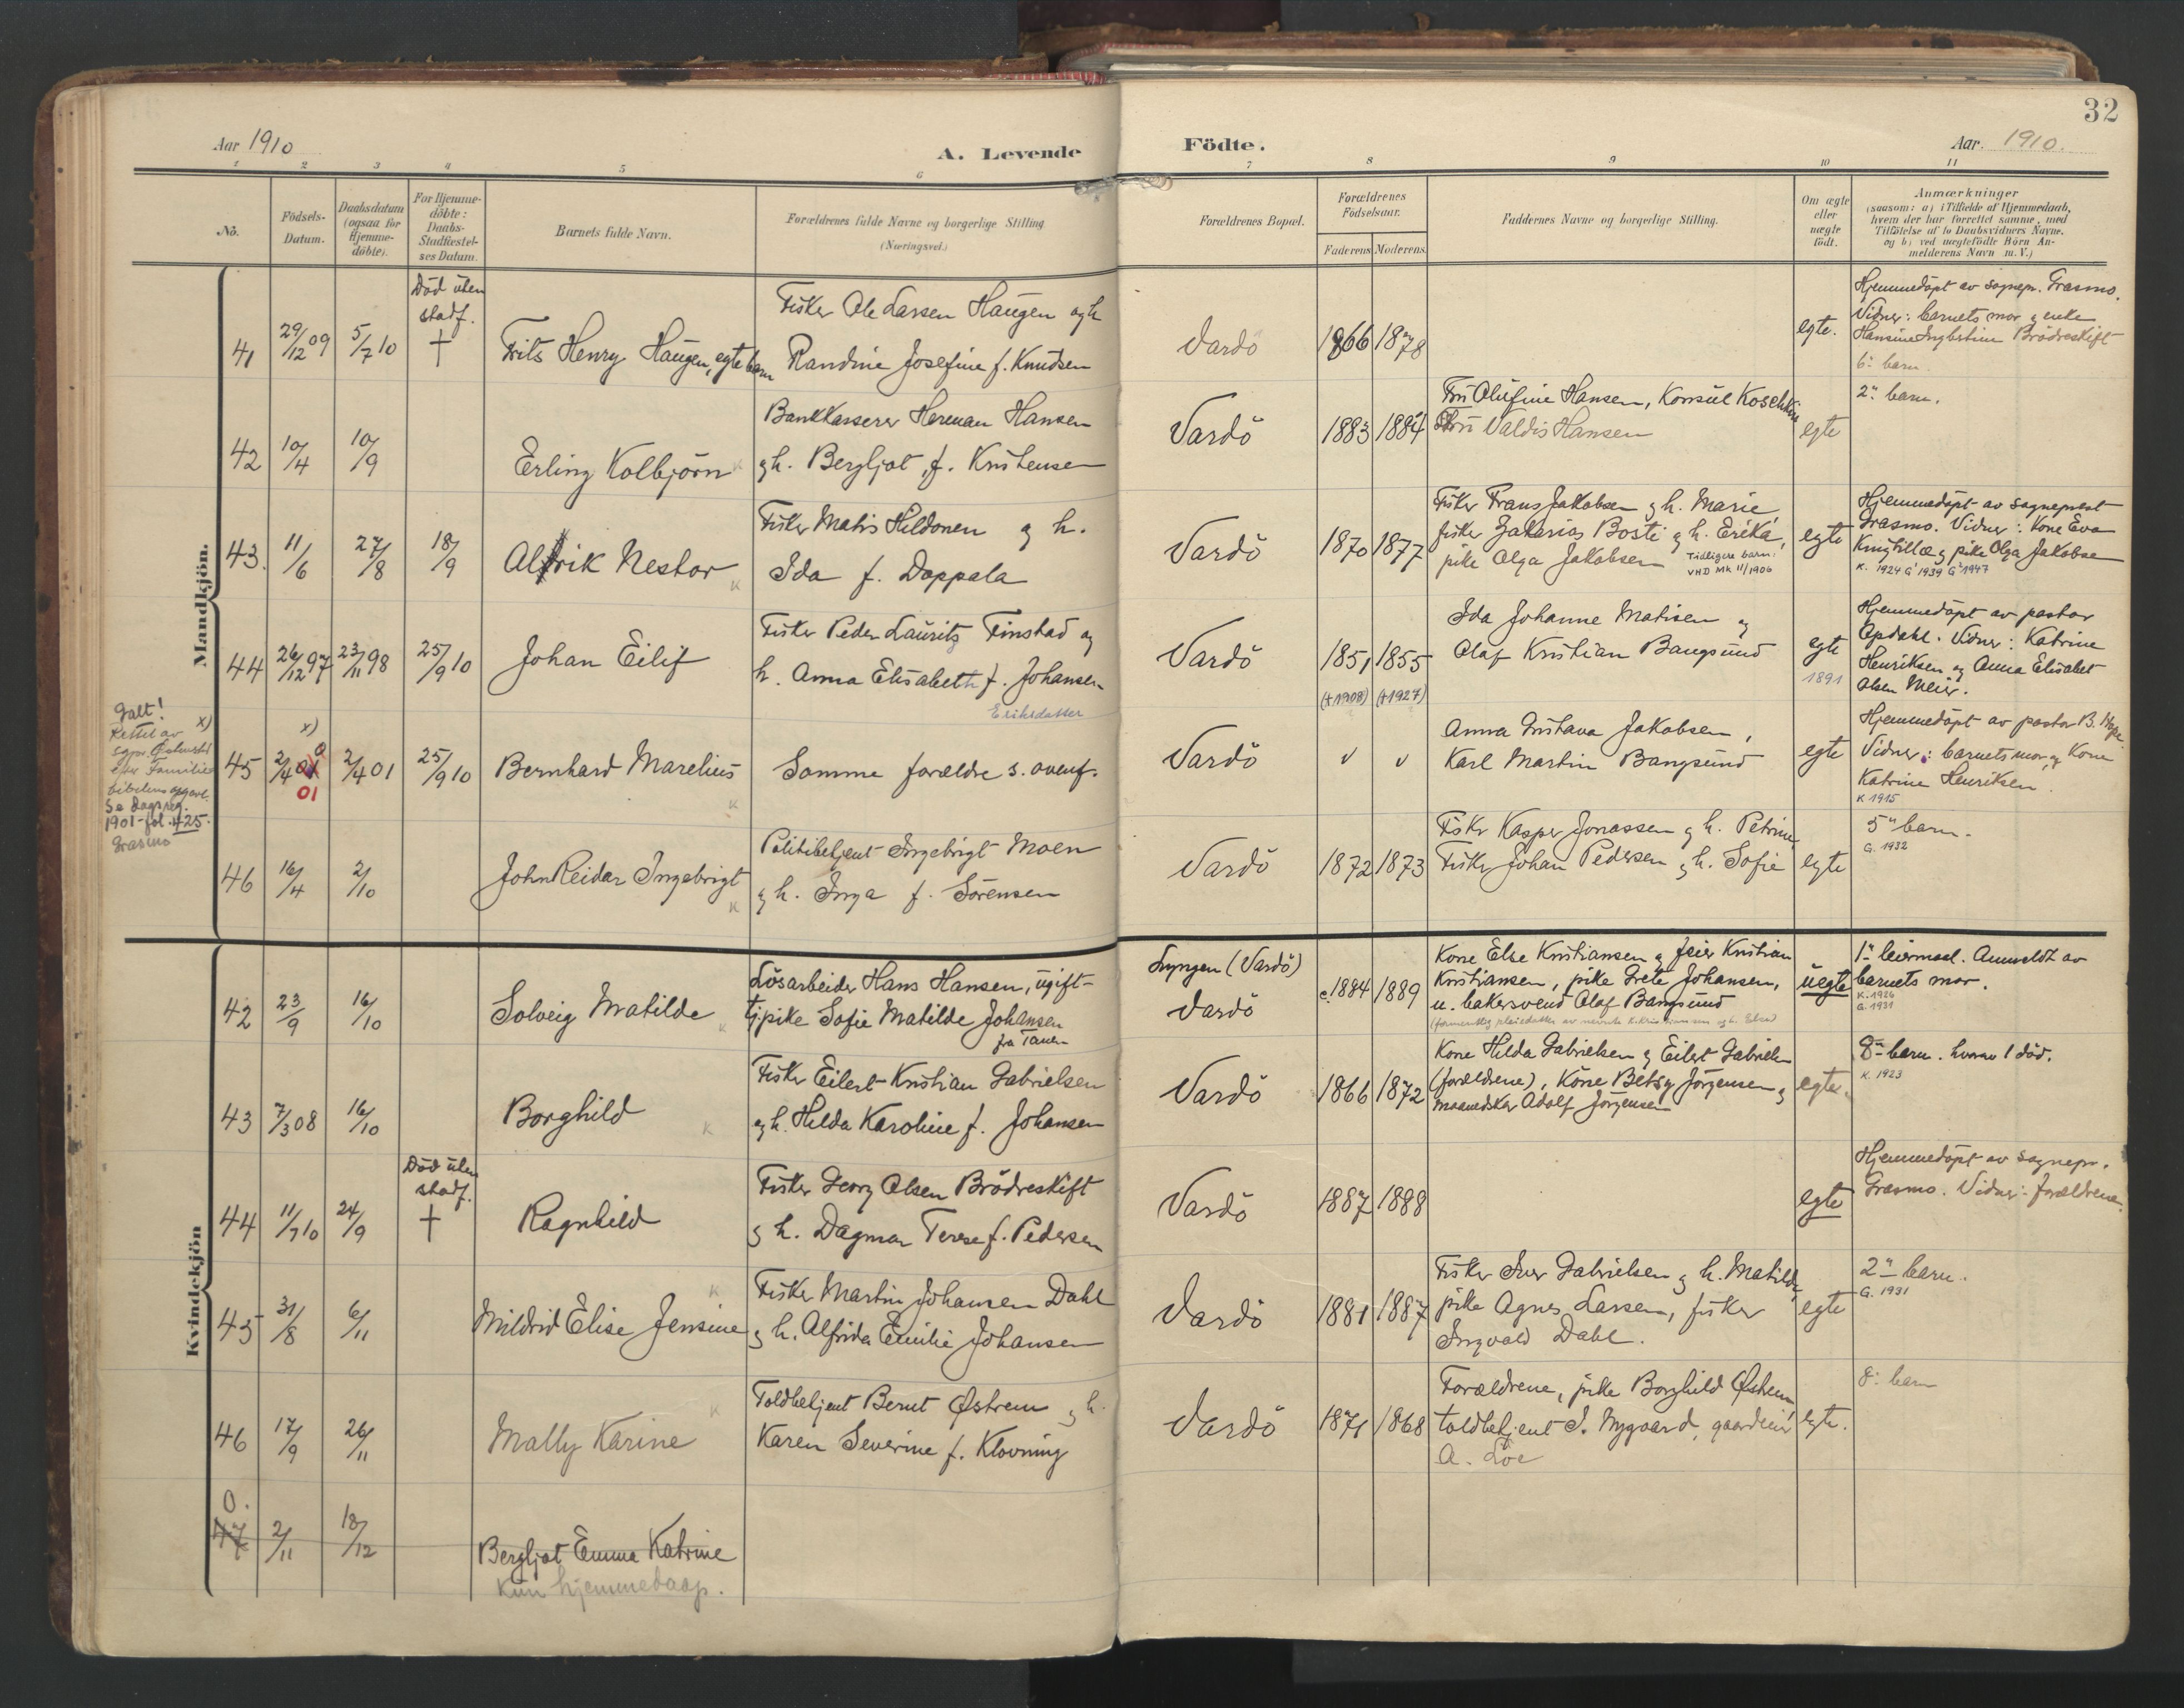 32
Aar 1910
A. Levende
Födte.
Aar. 1910.
1 2 3 4 5 6 7 8 9 10 11
No.
Födsels-
Datum.
Daabsdatum
(ogsaa for
Hjemme-
döbte).
For Hjemme-
döbte:
Daabs-
Stadfæstel-
ses Datum.
Barnets fulde Navn.
Forældrenes fulde Navne og borgerlige Stilling
(Næringsvei.)
Forældrenes Bopæl.
Forældrenes
Födselsaar.
Faderens Moderens
Faddernes Navne og borgerlige Stilling.
Om ægte
eller
uægte
födt.
Anmærkninger
(saasom: a) i Tilfælde af Hjemmedaab,
hvem der har forrettet samme, med
Tilföielse af to Daabsvidners Navne.
og b) ved uægtefödte Börn An-
melderens Navn m. V.)
Mandkjön.
41
29/12 09
5/7 10
Död uten
stadf.
†
Frits Henry Haugen, egte barn
Fisker Ole Larsen Haugen og h
Randine Josefine f. Knudsen
Vardö
1866 1878
egte.
Hjemmedöpt av sognepr. Grasmo.
Vidner: barnets mor og enke
Hansine Ingebertine Brödreskift
6: barn
42
10/4
10/9
Erling Kolbjörn
Bankkasserer Herman Hansen
og h. Bergljot f. Kristensen
Vardö
1883 1884
Fru Olufine Hansen, Konsul Koschkin
Fru Valdis Hansen
egte
2" barn.
43.
11/6
27/8
18/9
Alfrik Nestor
Fisker Matis Hildonen og h.
Ida f. Doppala
Vardö
1870 1877
Fisker Frans Jakobsen og h. Marie
fisker Zakarias Bosti og h. Erika,
pike Olga Jakobsen
Tidligere barn:
VHD MK 11/1906
egte
Hjemmedöpt av sogneprest
Grasmo. Vidner: Kone Eva
og pike Olga Jakobse
K. 1924 G' 1939 G² 1947
44
26/12 97
23/11 98
25/9 10
Johan Eilif
Fisker Peder Lauritz Finstad og
h. Anna Elisabeth f. Johansen
Eriksdatter
Vardö
1851 1855
(†1908) (†1927)
Ida Johanne Matisen og
Olaf Kristian Bangsund
egte
1891
Hjemmedöpt av pastor
Opdahl. Vidner: Katrine
Henriksen og Anna Elisabet
Olsen Meier.
Galt!
Rettet av x)
efter Familie
bibelens opgave.
Se dagsreg.
1901-fol. 425.
Grasmo
45
x)
2/4 01
2/4 01
25/9 10
Bernhard Marelius
Samme forældre s. ovenf.
Vardö
v v
Anna Gustava Jakobsen,
Karl Martin Bangsund
egte
Hjemmedöpt av pastor B.
Vidner: barnets mor og Kone
Katrine Henriksen.
K 1915
46
16/4
2/10
John Reidar Ingebrigt
Politibetjent Ingebrigt Moen
og h. Inga f. Sörensen
Vardö
1872 1873
Fisker Kasper Jonassen og h. Petrine
Fisker Johan Pedersen og h. Sofie
egte
5" barn.
G. 1932
Kvindekjön
42
23/9
16/10
Solveig Matilde
Lösarbeider Hans Hansen, ugift
tj.pike Sofie Matilde Johansen
fra Tanen
Lyngen (Vardö)
Vardö
c. 1884 1889
Kone Else Kristiansen og feier Kristian
Kristiansen, pike Grete Johansen,
u. bakersvend Olaf Bangsund
uegte
1" leiermaal. Anmeldt av
barnets mor.
K. 1926
G. 1931
43
7/3 08
16/10
Borghild
Fisker Eilert Kristian Gabrielsen
og h. Hilda Karoline f. Johansen
Vardö
1866 1872
Kone Hilda Gabrielsen og Eilert Gabrielsen
(forældrene), Kone Betsy Jörgensen og
Adolf Jörgensen
egte.
8" barn. hvorav 1 död.
K. 1923
44
11/7 10
24/9
Död uten
stadf.
†
Ragnhild
Fisker Georg Olsen Brödreskift
og h. Dagmar Terese f. Pedersen
Vardö
1887 1888
egte
Hjemmedöpt av sognepr.
Grasmo. Vidner: forældrene.
45
31/8
6/11
Mildrid Elise Jensine
Fisker Martin Johansen Dahl
og h. Alfrida Emilie Johansen
Vardö
1881 1887
Fisker Iver Gabrielsen og h. Matilde,
pike Agnes Larsen, fisker
Ingvald Dahl.
egte
2" barn.
G. 1931
46
17/9
26/11
Mally Karine
Toldbetjent Bernt Østrem og h.
Karen Severine f. Klovning
Vardö
1871 1868
Forældrene, pike Borghild Østrem
toldbetjent S. Nygaard, gaardeier
A. Löe
egte.
8: barn
0.
47
2/11
18/12
Bergljot Emma Katrine
Kun hjemmedaap.